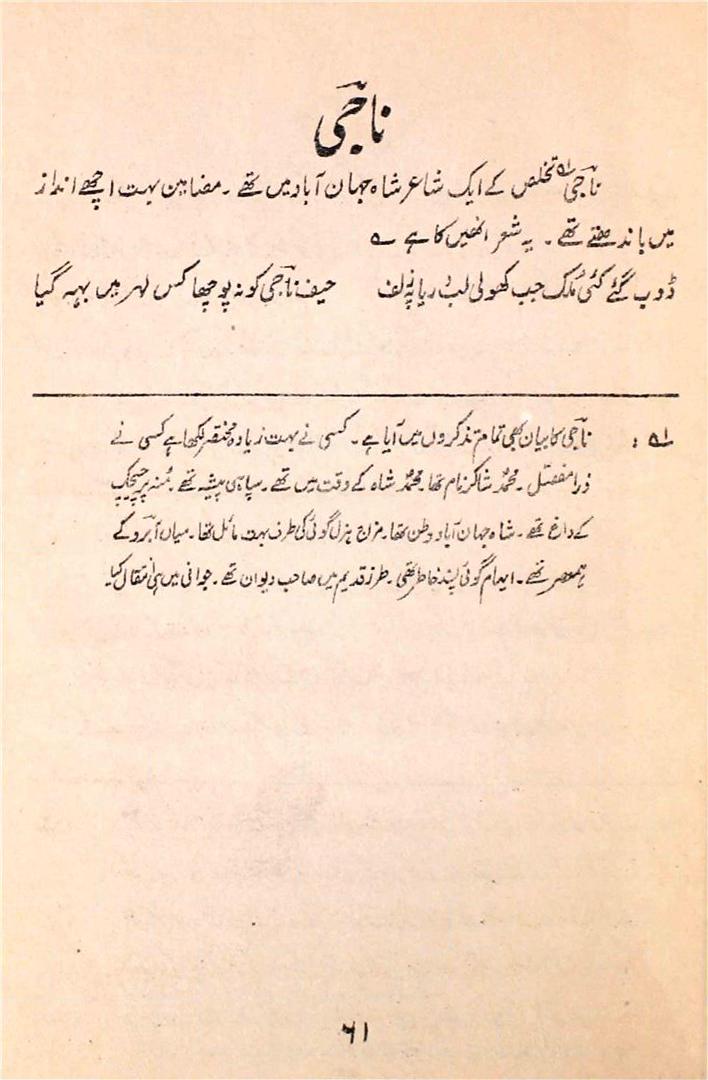 ناجی
ناجی؎۱ تخلص کے ایک شاعر شاہ جہان آباد میں تھے۔ مضامین بہت اچھے انداز
میں باندھتے تھے۔ یہ شعر انھیں کا ہے ؎
ڈوب گئے کئی مُلک جب کھولی لبِ دریا پہ زلف حیف ناجی کو نہ پوچھا کس لہر میں بہہ گیا
؎۱ : ناجی کا بیان بھی تمام تذکروں میں آیا ہے۔ کسی نے بہت زیادہ مختصر لکھا ہے کسی نے
ذرا مفصّل۔ محمّد شاکر نام تھا۔ محمّد شاہ کے وقت میں تھے۔ سپاہی پیشہ تھے۔ مُنہ پر چیچک
کے داغ تھے۔ شاہ جہان آباد وطن تھا۔ مزاج ہزل گوئی کی طرف بہت مائل تھا۔ میاں آبرو کے
ہمعصر تھے۔ ایہام گوئی پسندِ خاطر تھی۔ طرز قدیم میں صاحب دیوان تھے۔ جوانی میں ہی انتقال کیا۔
۶۱